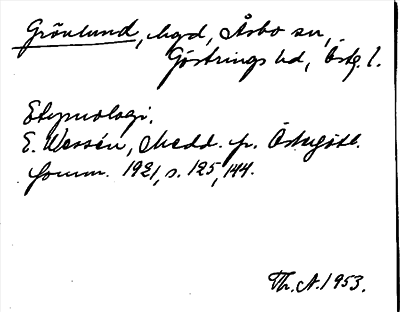 Grönlund, bgd, Åsbo sn,
Göstrings hd, Östg. l.
Etymologi:
E. Wessén, Medd. fr. Östergötl.
fornm. 1921, s. 125, 144.
Th. A. 1953.